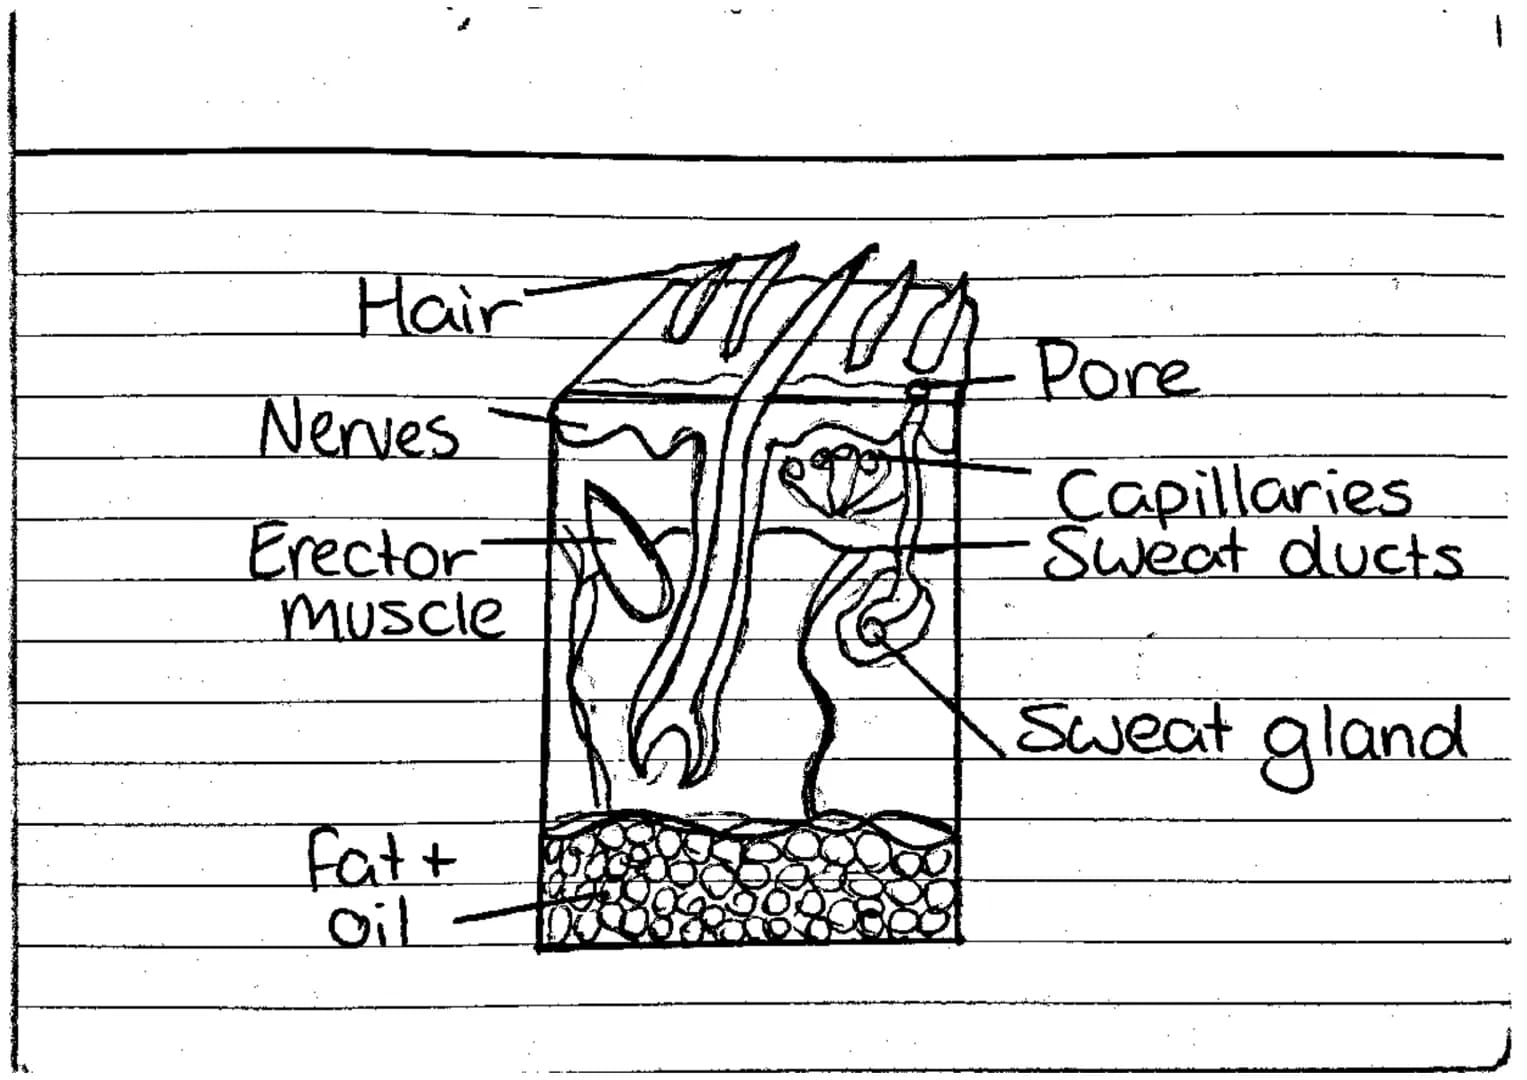 Hair
Pore
Nerves
Capillaries
Erector
muscle
Sweat ducts
Sweat gland
Fat +
oil